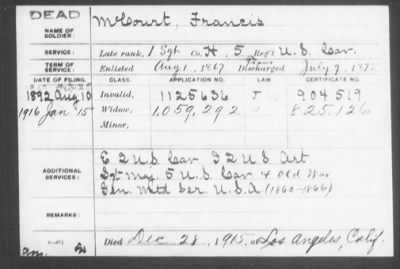 DEAD
NAME OF SOLDIER: McCourt, Francis
SERVICE: Late rank, 1 Sgt Co. H, 5 Reg't U.S. Cav.
TERM OF SERVICE: Enlisted Aug 1, 1867 Discharged July 9, 1872
DATE OF FILING. CLASS. APPLICATION NO. LAW CERTIFICATE NO.
1892 Aug 10 Invalid, 1125636 J 904519
1916 Jan 15 Widow, 1,059,292 825,126
Minor,
ADDITIONAL SERVICES: E 2 U.S. Cav I 2 U.S. Art
Sgt Maj. 5 U.S. Cav. & Old War
Gen. Mtd Ser. U.S.A (1860-1866)
REMARKS:
Died Dec 28, 1915, at Los Angeles, Calif.